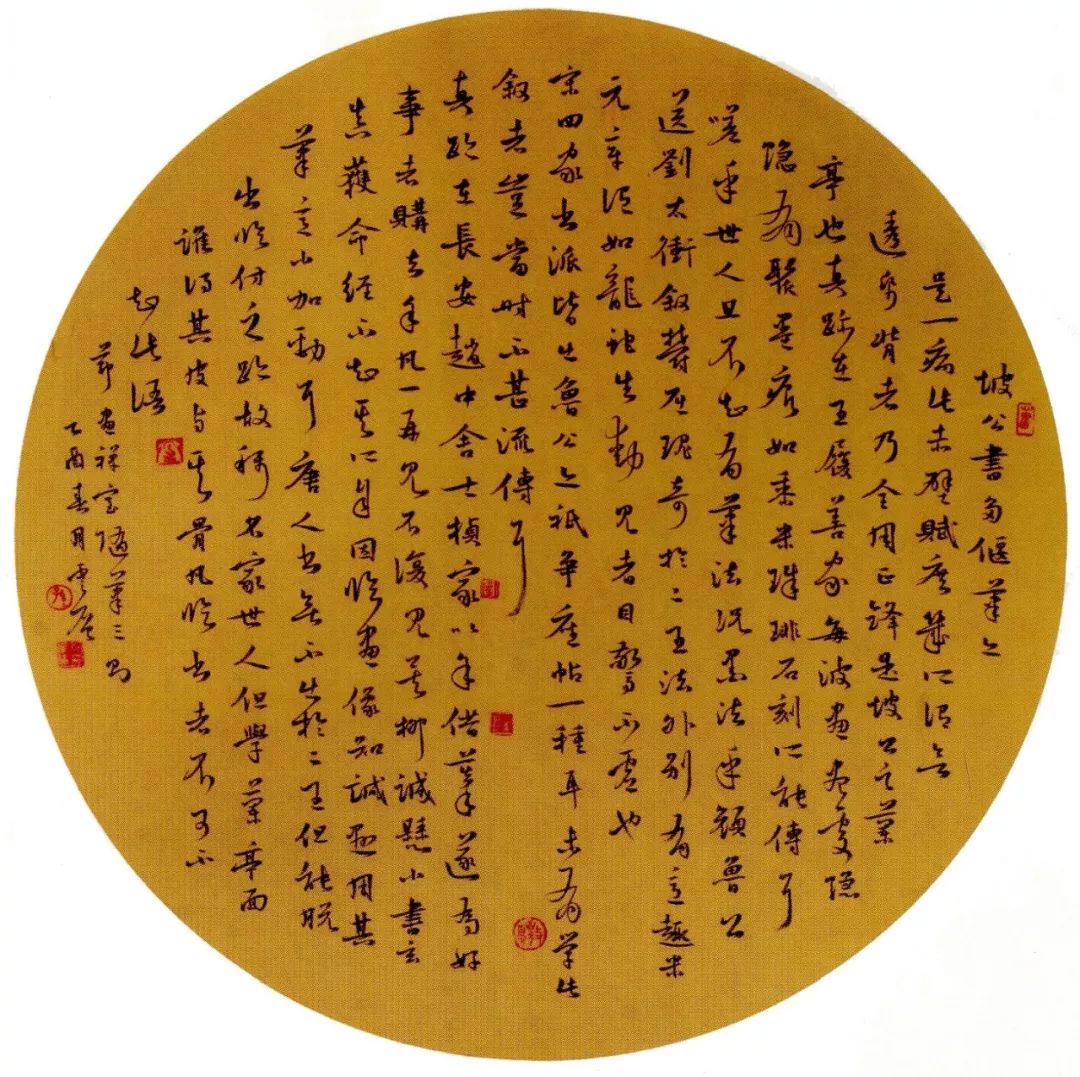 坡公書多偃筆亦
是一病此赤壁賦庶幾所謂欲
透紙背者乃全用正鋒是坡公之蘭
亭也真跡在王履善家每波畫盡處隱
隱有聚墨痕如黍米珠琲石刻所能傳耳
嗟乎世人且不知有筆法況墨法乎顏魯公
送劉太衝叙鬱屈瑰奇於二王法外別有意趣米
元章謂如龍蛇生動見者目驚不虛也
宋四家書派皆出魯公亦祇爭座帖一種耳未有學此
叙者豈當時不甚流傳耶
真跡在長安趙中舍士楨家以余借摹遂為好
事者購去余凡一再見不復見矣柳誠懸小書玄
真護命經不知其所自因臨畫像知誠懸用其
筆意小加勁耳唐人書無不出於二王但能脫
出臨仿之跡故稱名家世人但學蘭亭面
誰得其皮與其骨凡臨書者不可不
知此語
節畫禅室隨筆三則
乙酉春月